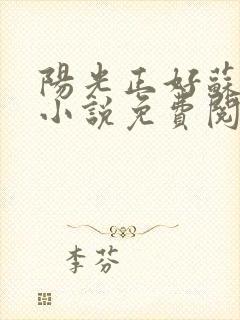 陽光正好蘇
小說免費閱
李芬